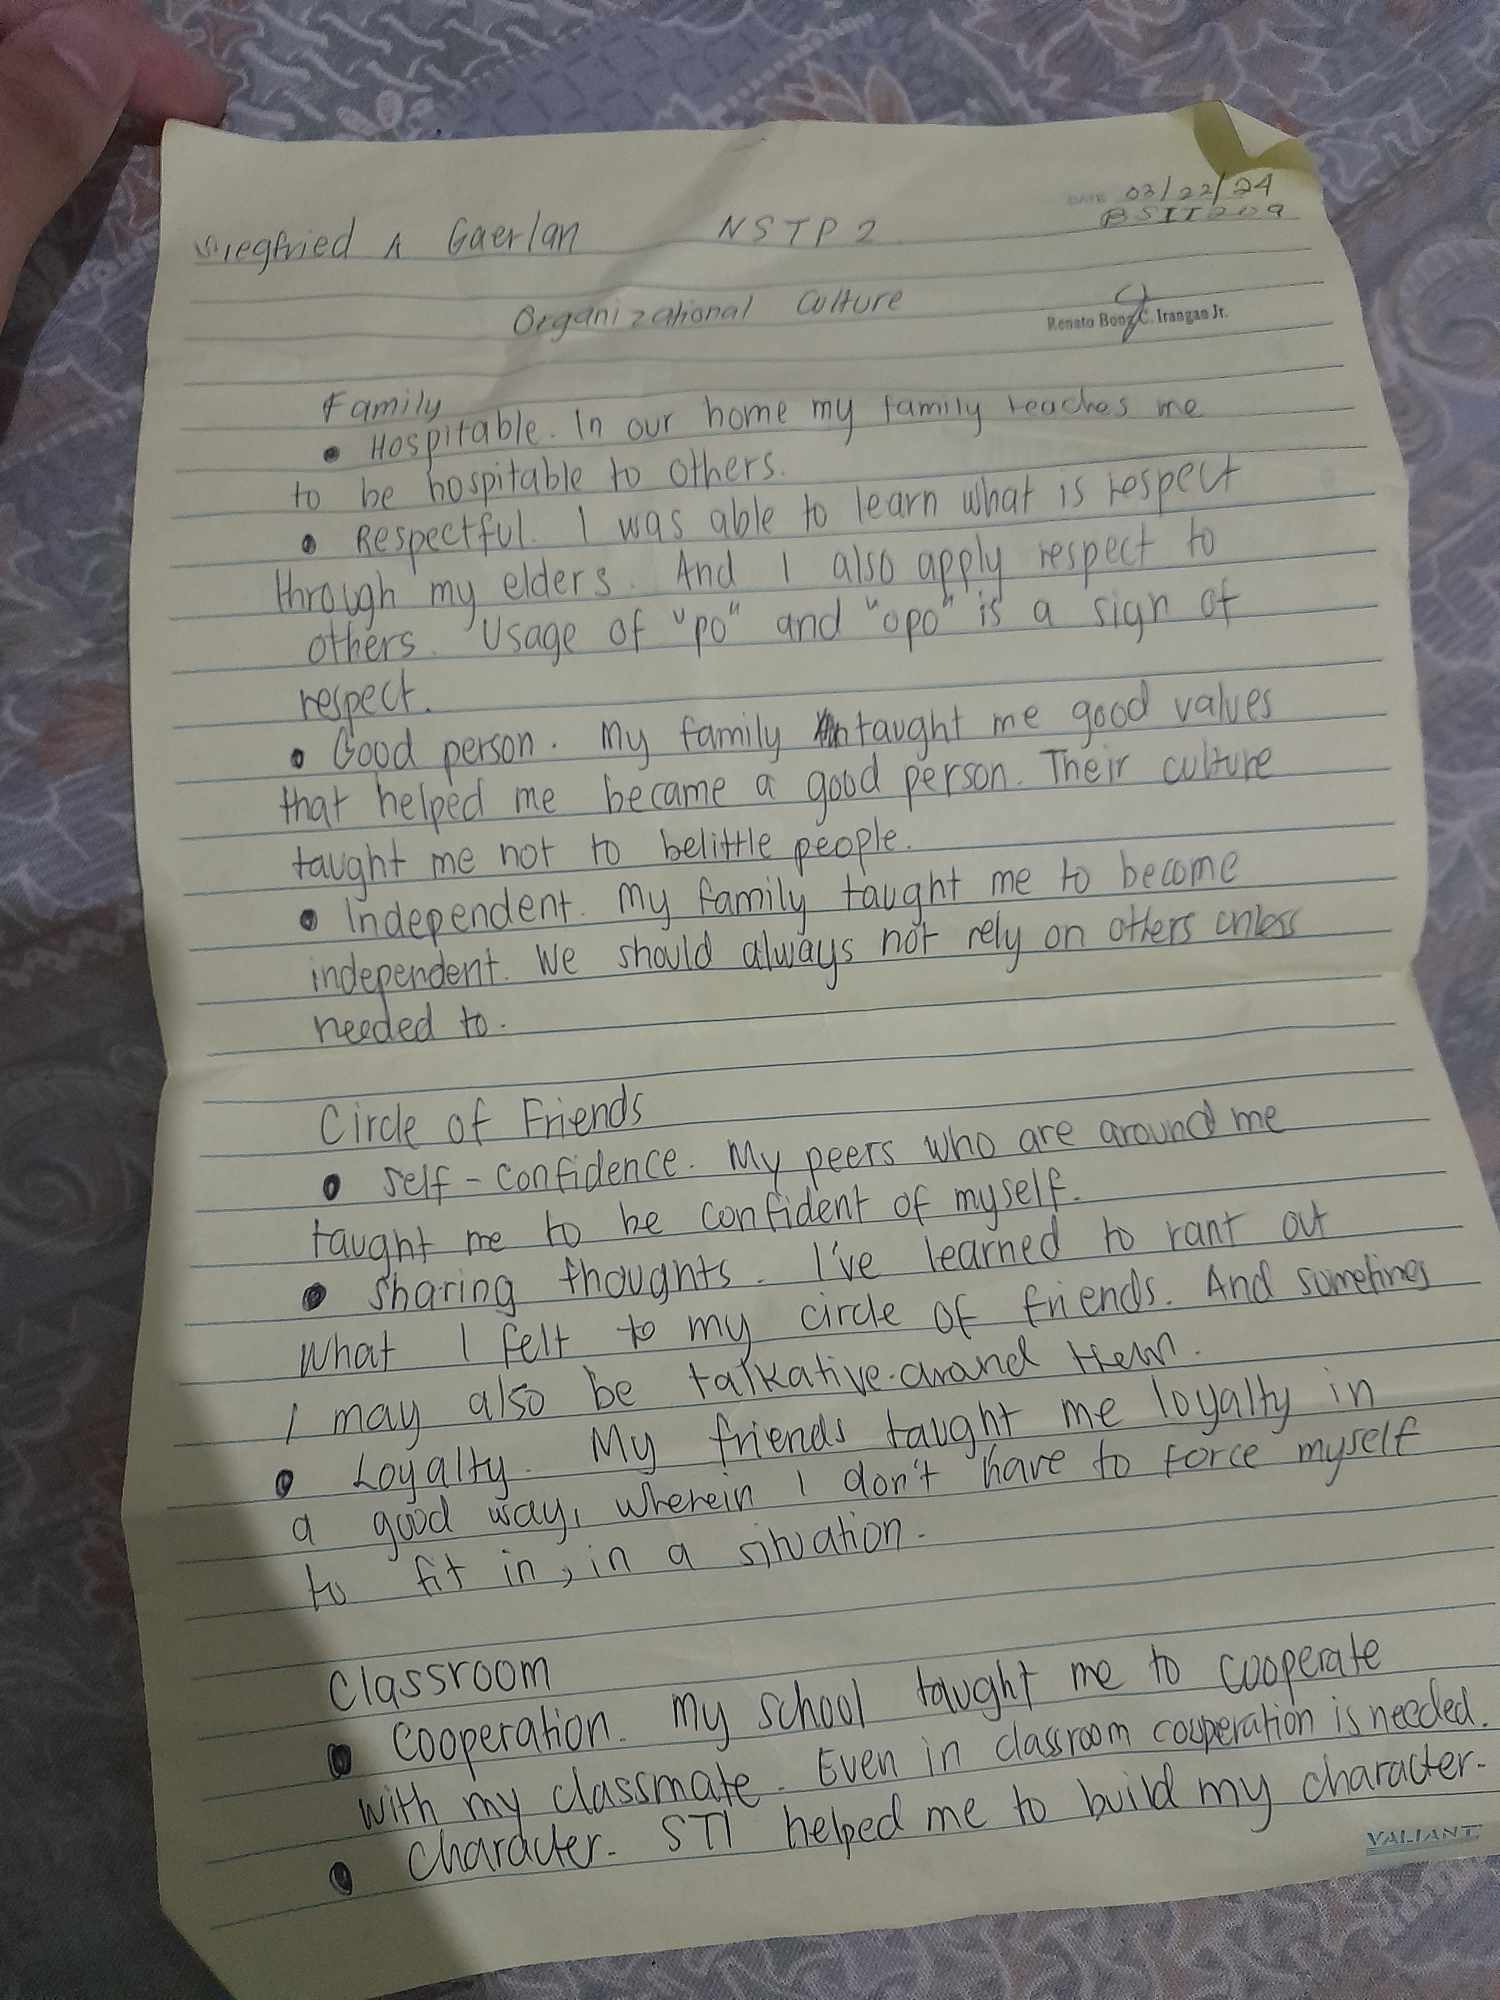 DATE 03/22/24
Siegfried A Gaerlan NSTP 2 BSIT209
Organizational Culture
Renato Bong C. Irangan Jr.
Family
• Hospitable. In our home my family teaches me
to be hospitable to others.
• Respectful. I was able to learn what is respect
through my elders. And I also apply respect to
others. Usage of "po" and "opo" is a sign of
respect.
• Good person. My family taught me good values
that helped me became a good person. Their culture
taught me not to belittle people.
• Independent. My family taught me to become
independent. We should always not rely on others unless
needed to.
Circle of Friends
• Self-confidence. My peers who are around me
taught me to be confident of myself.
• Sharing thoughts. I've learned to rant out
what I felt to my circle of friends. And sometimes
I may also be talkative around them.
• Loyalty. My friends taught me loyalty in
a good way, wherein I don't have to force myself
to fit in, in a situation.
Classroom
• Cooperation. My school taught me to cooperate
with my classmate. Even in classroom cooperation is needed.
• Character. STI helped me to build my character.
VALIANT